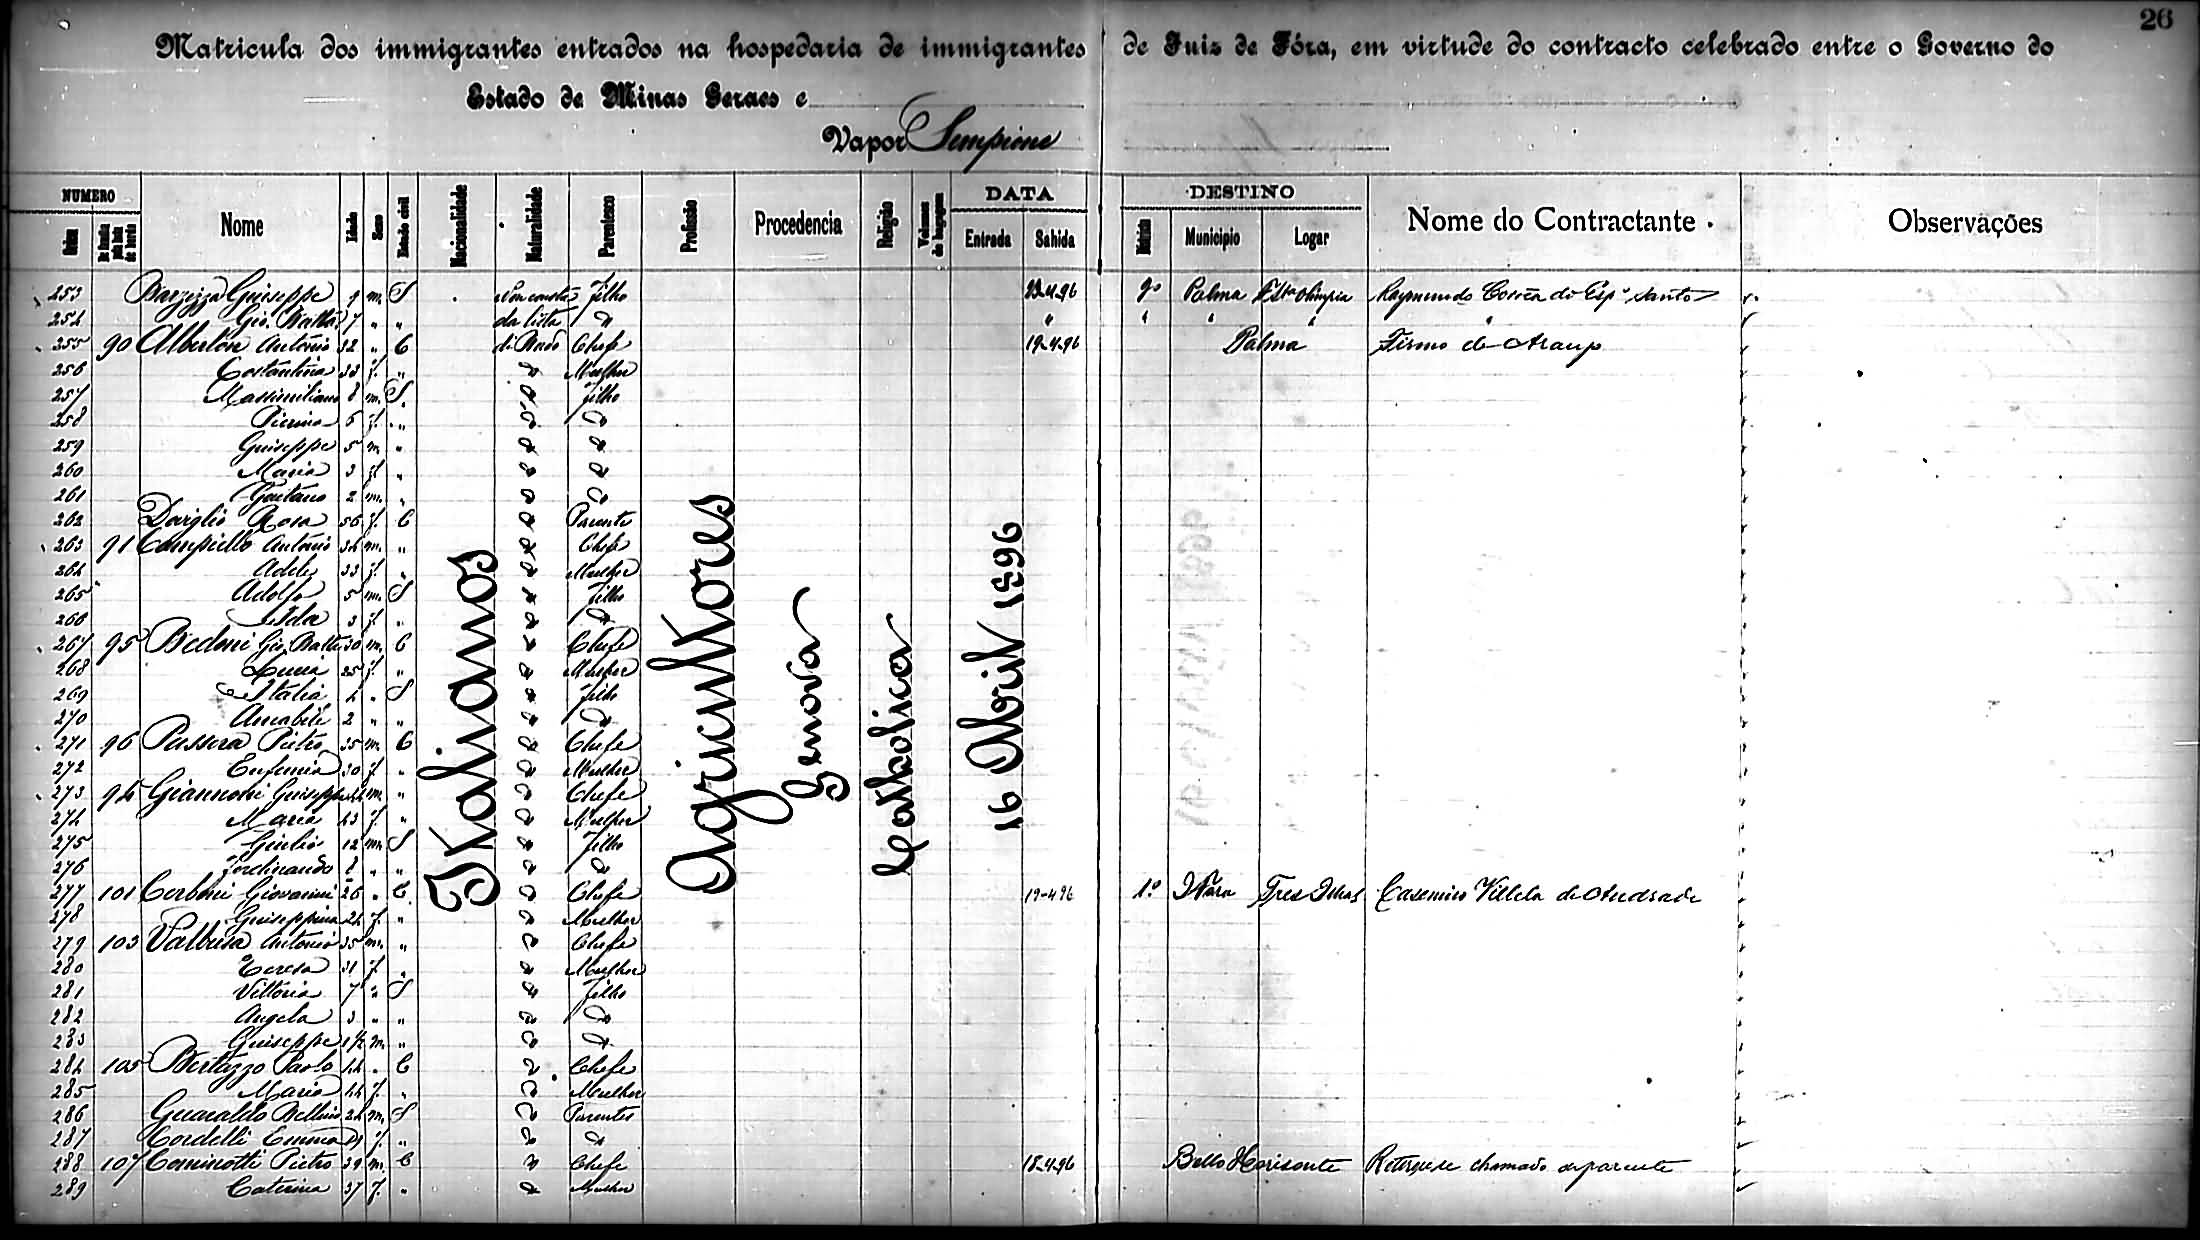 26
Matricula dos immigrantes entrados na hospedaria de immigrantes de Juiz de Fóra, em virtude do contracto celebrado entre o Governo do
Estado de Minas Geraes e
Vapor Sempione
NUMERO Nome Idade Sexo Estado civil Nacionalidade Naturalidade Parentesco Profissão Procedencia Religião Volumes de bagagem DATA DESTINO Nome do Contractante Observações
Ordem Entrada Sahida Districto Municipio Logar
Italianos Agricultores Genova Catholica 16 Abril 1896
253 Barzizza Giuseppe 9 m. S Non consta Filho 22-4-96 9º Palma Raymundo Corrêa do Espº Santo
254 Gio. Batta 7 " " da lista D
255 90 Alberton Antonio 32 " C di Bordo Chefe 19-4-96 Palma Firmo de Araujo
256 Costantina 33 f. " Mulher
257 Massimiliano 8 m. S. Filho
258 Pierina 6 f. "
259 Guiseppe 5 m "
260 Maria 3 f "
261 Gaetano 2 m. "
262 Daviglio Rosa 56 f. C Parente
263 91 Campiello Antonio 34 m. " Chefe
264 Adele 33 f. " Mulher
265 Adolfo 5 m. S Filho
266 Ida 3 f. "
267 95 Bedoni Gio. Batta 30 m. C Chefe
268 Lucia 25 f. " Mulher
269 Italia 4 " S Filho
270 Amabile 2 " "
271 96 Pussera Pietro 35 m. C Chefe
272 Eufemia 30 f " Mulher
273 94 Giannoni Guiseppe 44 m " Chefe
274 Maria 43 f. " Mulher
275 Giulio 12 m. S Filho
276 Ferdinando 8 " "
277 101 Cerboni Giovanni 26 " C. Chefe 19-4-96 1º J. Fora Tres Ilhas Casemiro Villela de Andrade
278 Guiseppina 24 f. " Mulher
279 103 Valbusa Antonio 35 m. " Chefe
280 Teresa 31 f. " Mulher
281 Vittoria 7 " S Filho
282 Angela 3 " "
283 Guiseppe 1½ m. "
284 105 Bertazzo Paolo 44 " C Chefe
285 Maria 44 f. " Mulher
286 Guaraldo Bellino 24 m. S Parentes
287 Cordelli Emma f. "
288 107 Cominotti Pietro 39 m. C Chefe 18-4-96 Bello Horisonte chamado parente
289 Caterina 37 f. " Mulher